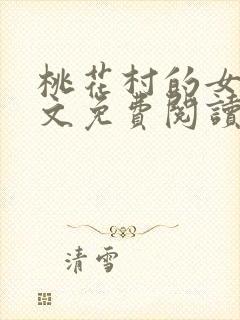 桃花村的女
文免費閱讀
清雪